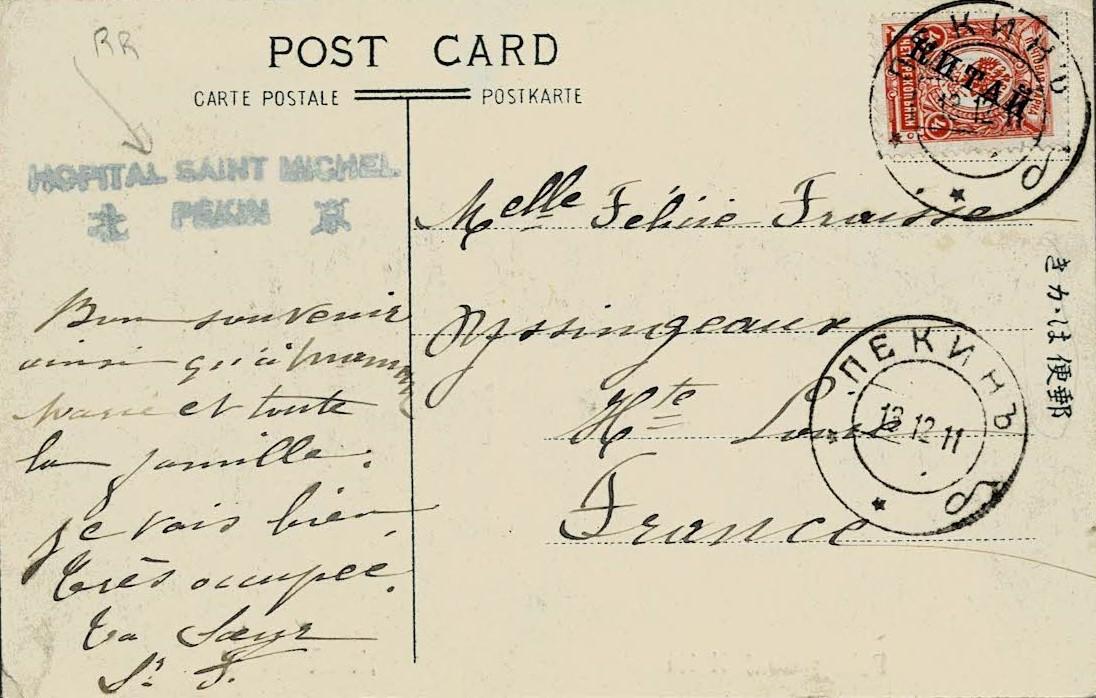 RR
POST CARD
CARTE POSTALE
POSTKARTE
КИТАЙ
ПЕКИНЪ
12 11
HOPITAL SAINT MICHEL
PEKIN
Melle Félicie Fraisse
Yssingeaux
Hte Loire
France
ПЕКИНЪ
12 11
きかは便郵
Bon souvenir
ainsi qu'à maman
Marie et toute
la famille.
je vais bien,
très occupée.
ta Sœur
Sr F.